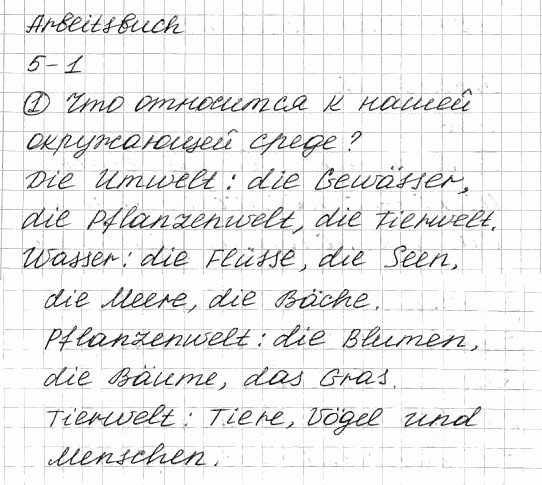 Arbeitsbuch
5-1
① Что относится к нашей
окружающей среде?
Die Umwelt: die Gewässer,
die Pflanzenwelt, die Tierwelt.
Wasser: die Flüsse, die Seen,
die Meere, die Bäche.
Pflanzenwelt: die Blumen,
die Bäume, das Gras.
Tierwelt: Tiere, Vögel und
Menschen.